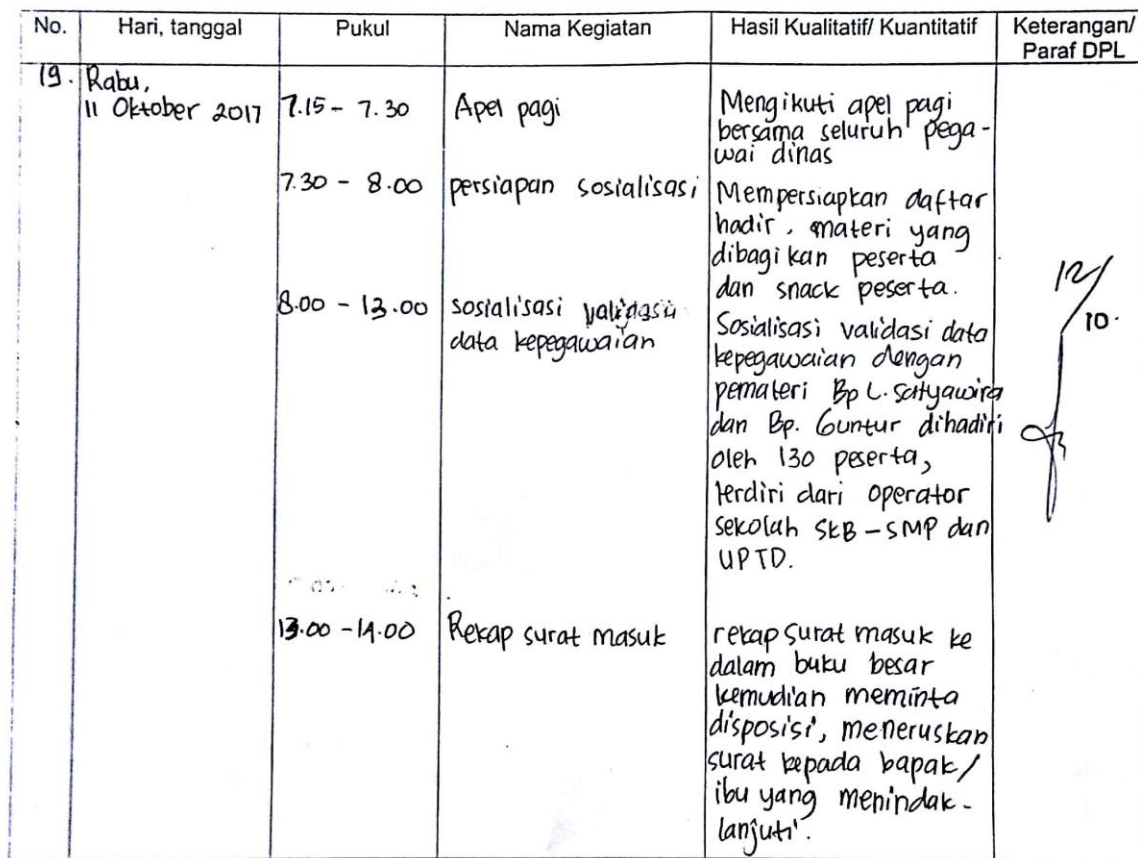 No. Hari, tanggal Pukul Nama Kegiatan Hasil Kualitatif/ Kuantitatif Keterangan/
Paraf DPL
19. Rabu,
11 Oktober 2017 7.15 - 7.30 Apel pagi Mengikuti apel pagi
bersama seluruh pega-
wai dinas
7.30 - 8.00 persiapan sosialisasi Mempersiapkan daftar
hadir, materi yang
dibagikan peserta
dan snack peserta.
8.00 - 13.00 sosialisasi validasi
data kepegawaian
Sosialisasi validasi data
kepegawaian dengan
pemateri Bp L. Satyawira
dan Bp. Guntur dihadiri
oleh 130 peserta,
terdiri dari operator
sekolah SKB - SMP dan
UPTD.
12/
10.
13.00 - 14.00 Rekap surat masuk rekap surat masuk ke
dalam buku besar
kemudian meminta
disposisi, meneruskan
surat kepada bapak/
ibu yang menindak-
lanjuti.